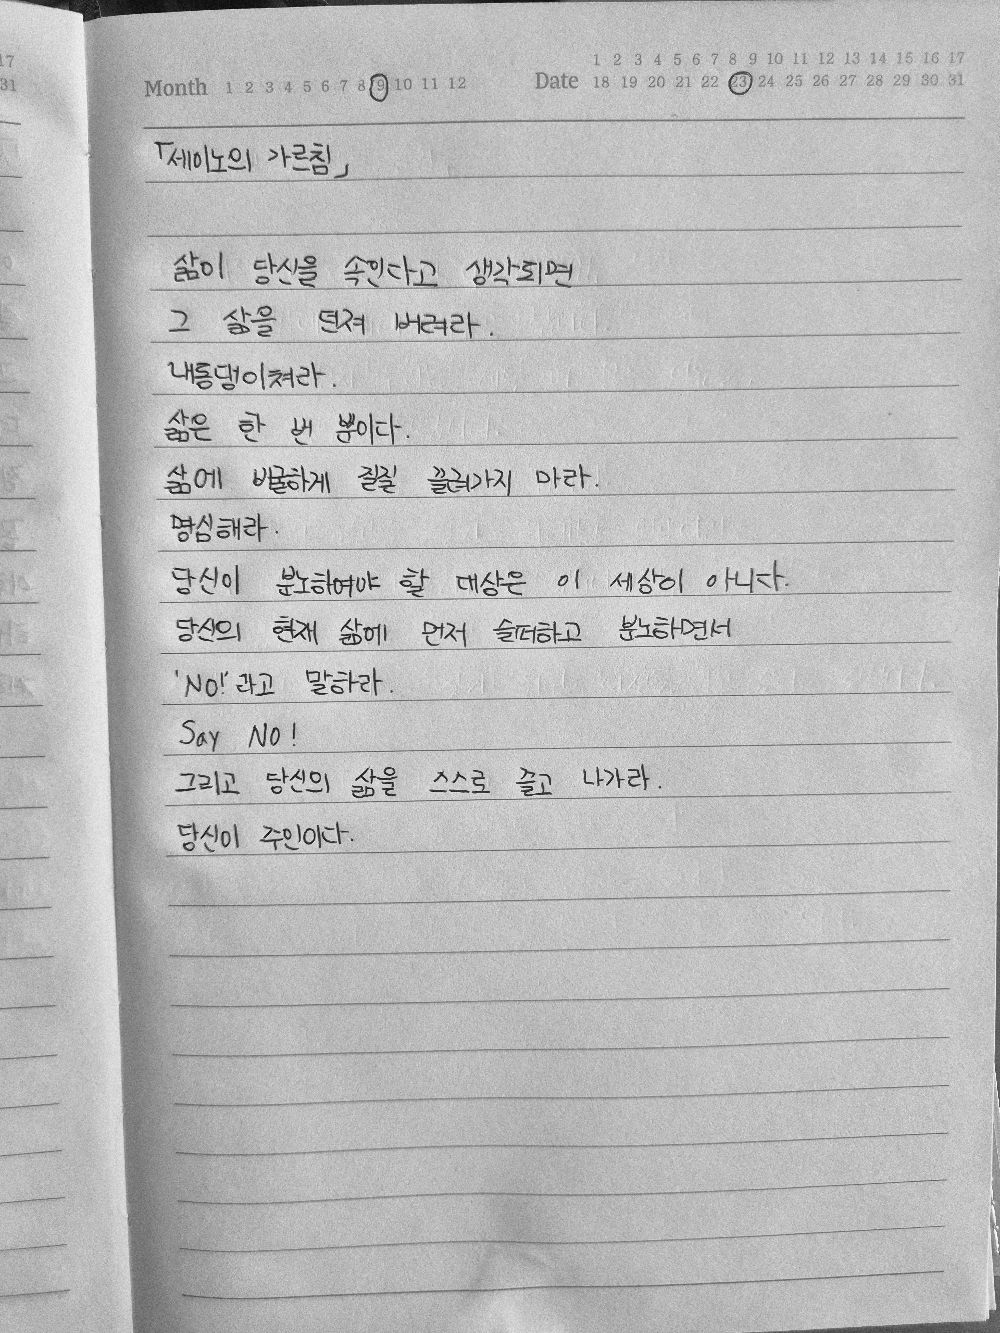 17
31
1 2 3 4 5 6 7 8 9 10 11 12 13 14 15 16 17
Month 1 2 3 4 5 6 7 8 9 10 11 12 Date 18 19 20 21 22 23 24 25 26 27 28 29 30 31
「세이노의 가르침」
삶이 당신을 속인다고 생각되면
그 삶을 던져 버려라.
내동댕이쳐라.
삶은 한 번 뿐이다.
삶에 비굴하게 질질 끌려가지 마라.
명심해라.
당신이 분노하여야 할 대상은 이 세상이 아니다.
당신의 현재 삶에 먼저 슬퍼하고 분노하면서
'No!'라고 말하라.
Say No!
그리고 당신의 삶을 스스로 즐고 나가라.
당신이 주인이다.